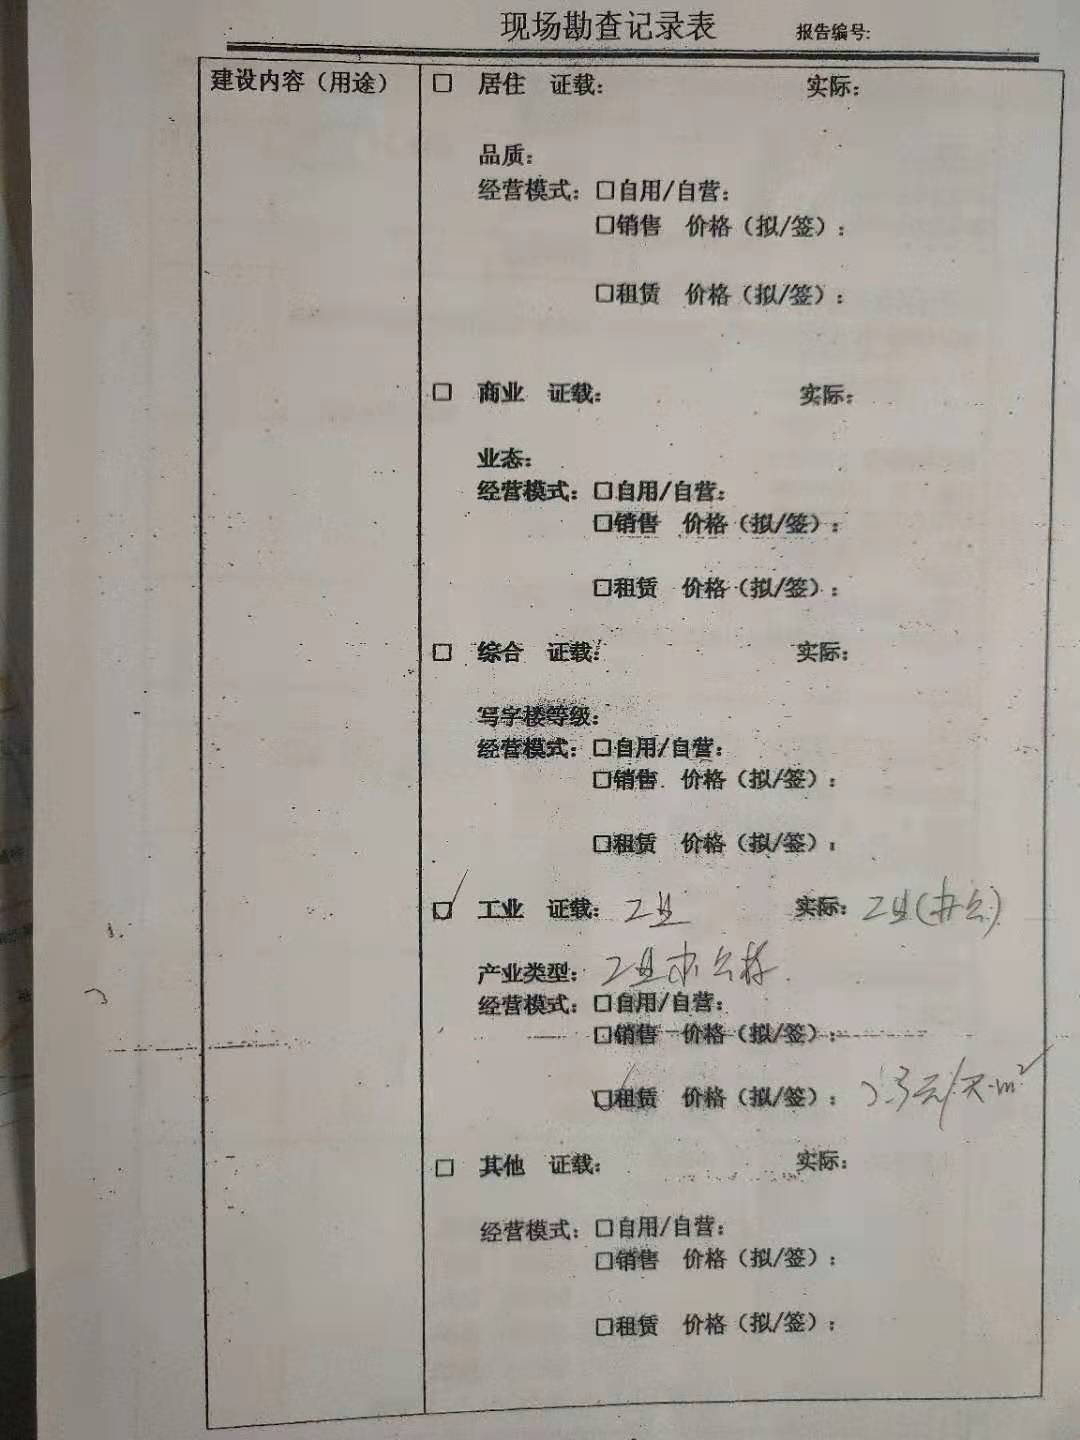 现场勘查记录表 报告编号:
建设内容（用途）
□ 居住 证载： 实际：
品质：
经营模式：□自用/自营：
□销售 价格（拟/签）：
□租赁 价格（拟/签）：
□ 商业 证载： 实际：
业态：
经营模式：□自用/自营：
□销售 价格（拟/签）：
□租赁 价格（拟/签）：
□ 综合 证载： 实际：
写字楼等级：
经营模式：□自用/自营：
□销售 价格（拟/签）：
□租赁 价格（拟/签）：
☑ 工业 证载：工业 实际：工业(办公)
产业类型：工业办公楼
经营模式：□自用/自营：
□销售 价格（拟/签）：
☑租赁 价格（拟/签）： 元/天·m²
□ 其他 证载： 实际：
经营模式：□自用/自营：
□销售 价格（拟/签）：
□租赁 价格（拟/签）：